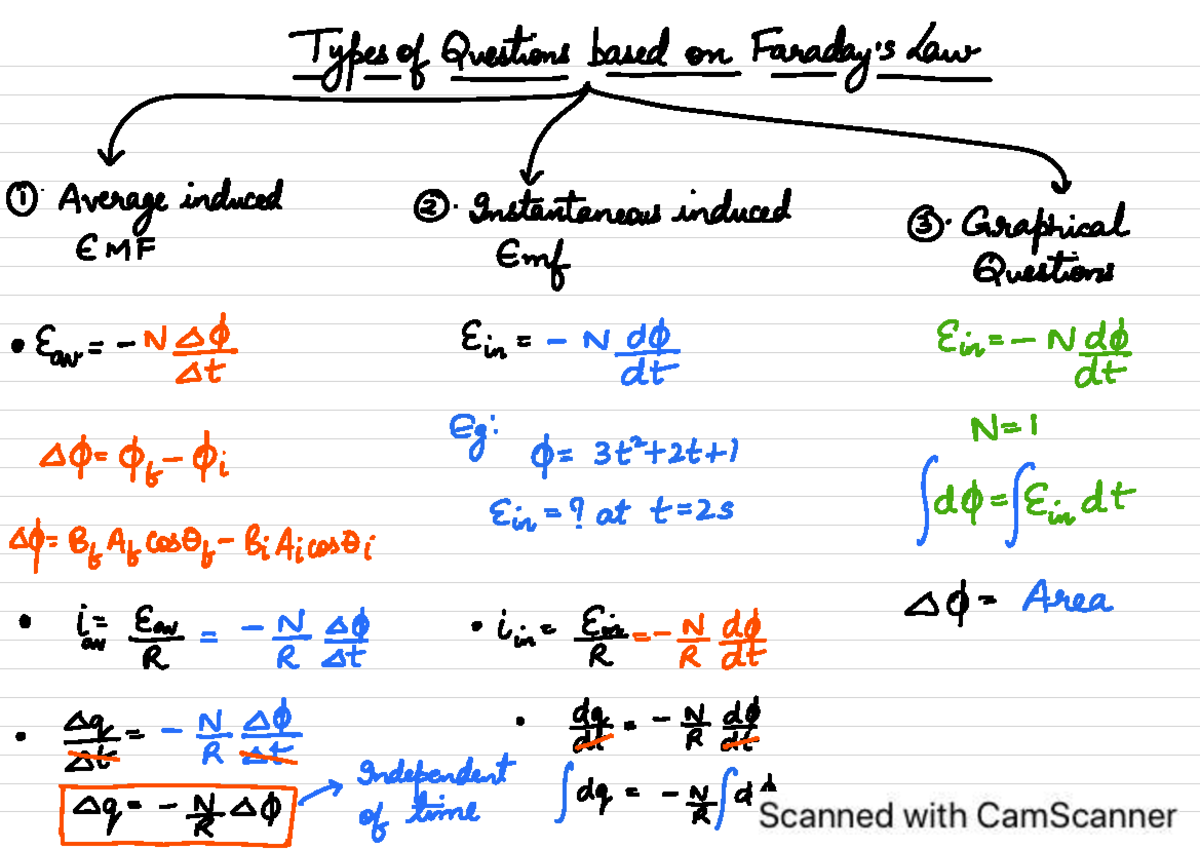 Types of Questions based on Faraday's Law
① Average induced
EMF
• Ɛav = - N Δϕ/Δt
Δϕ = ϕf - ϕi
Δϕ = Bf Af cosθf - Bi Ai cosθi
• iav = Ɛav/R = - N/R Δϕ/Δt
• Δq/Δt = - N/R Δϕ/Δt
Δq = - N/R Δϕ
Independent
of time
②. Instantaneous induced
Emf
Ɛin = - N dϕ/dt
Eg:
ϕ = 3t²+2t+1
Ɛin = ? at t=2s
• iin = Ɛin/R = - N/R dϕ/dt
• dq/dt = - N/R dϕ/dt
∫dq = - N/R ∫d
③. Graphical
Questions
Ɛin = - N dϕ/dt
N=1
∫dϕ = ∫Ɛin dt
Δϕ = Area
Scanned with CamScanner